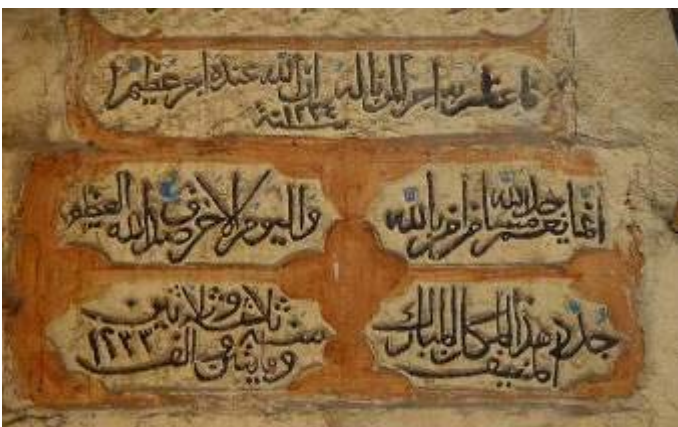 ان الله عنده اجر عظيم
سنة ١٢٣٤
انما يعمر مساجد الله من امن بالله
واليوم الاخر صدق الله العظيم
جدد هذا المكان المبارك
المنيف
سنة ثلاث وثلاثين
ومايتين والف ١٢٣٣